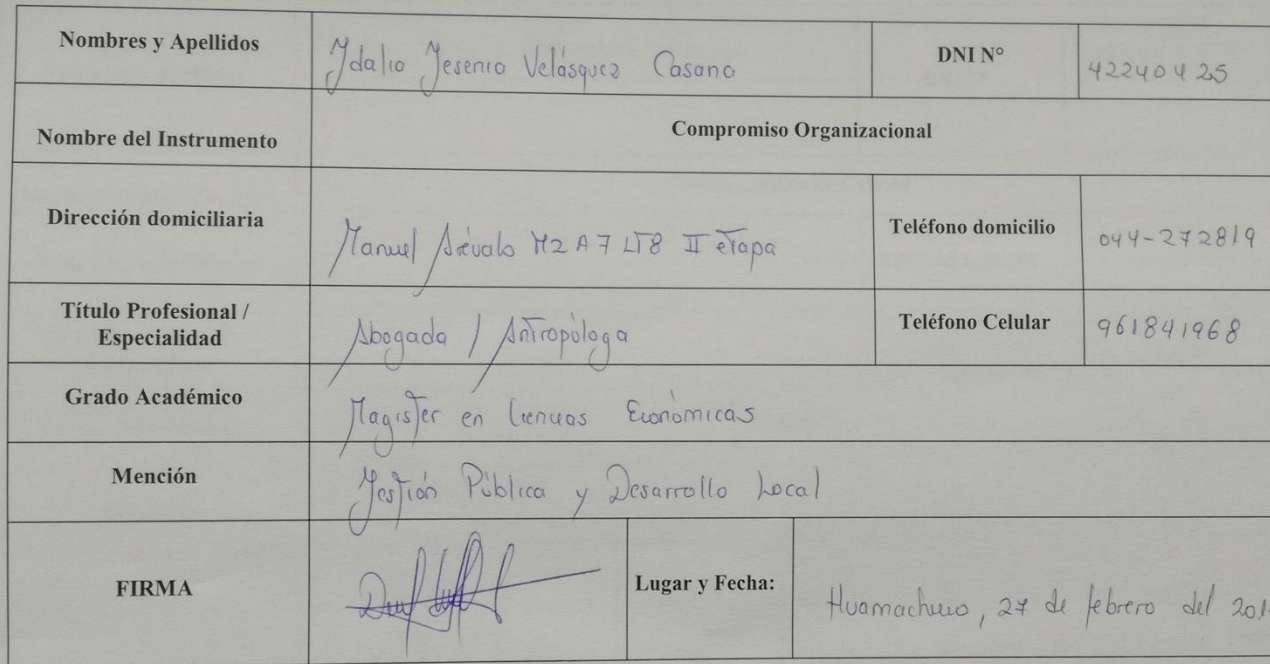 Nombres y Apellidos
Ydalia Yesenia Velásquez Casana
DNI N°
42240425
Nombre del Instrumento
Compromiso Organizacional
Dirección domiciliaria
Manuel Arévalo Mz A7 LT8 II eTapa
Teléfono domicilio
044-272819
Título Profesional /
Especialidad
Abogada / Antropóloga
Teléfono Celular
961841968
Grado Académico
Magister en Ciencias Económicas
Mención
Gestión Pública y Desarrollo Local
FIRMA
Lugar y Fecha:
Huamachuco, 27 de febrero del 201